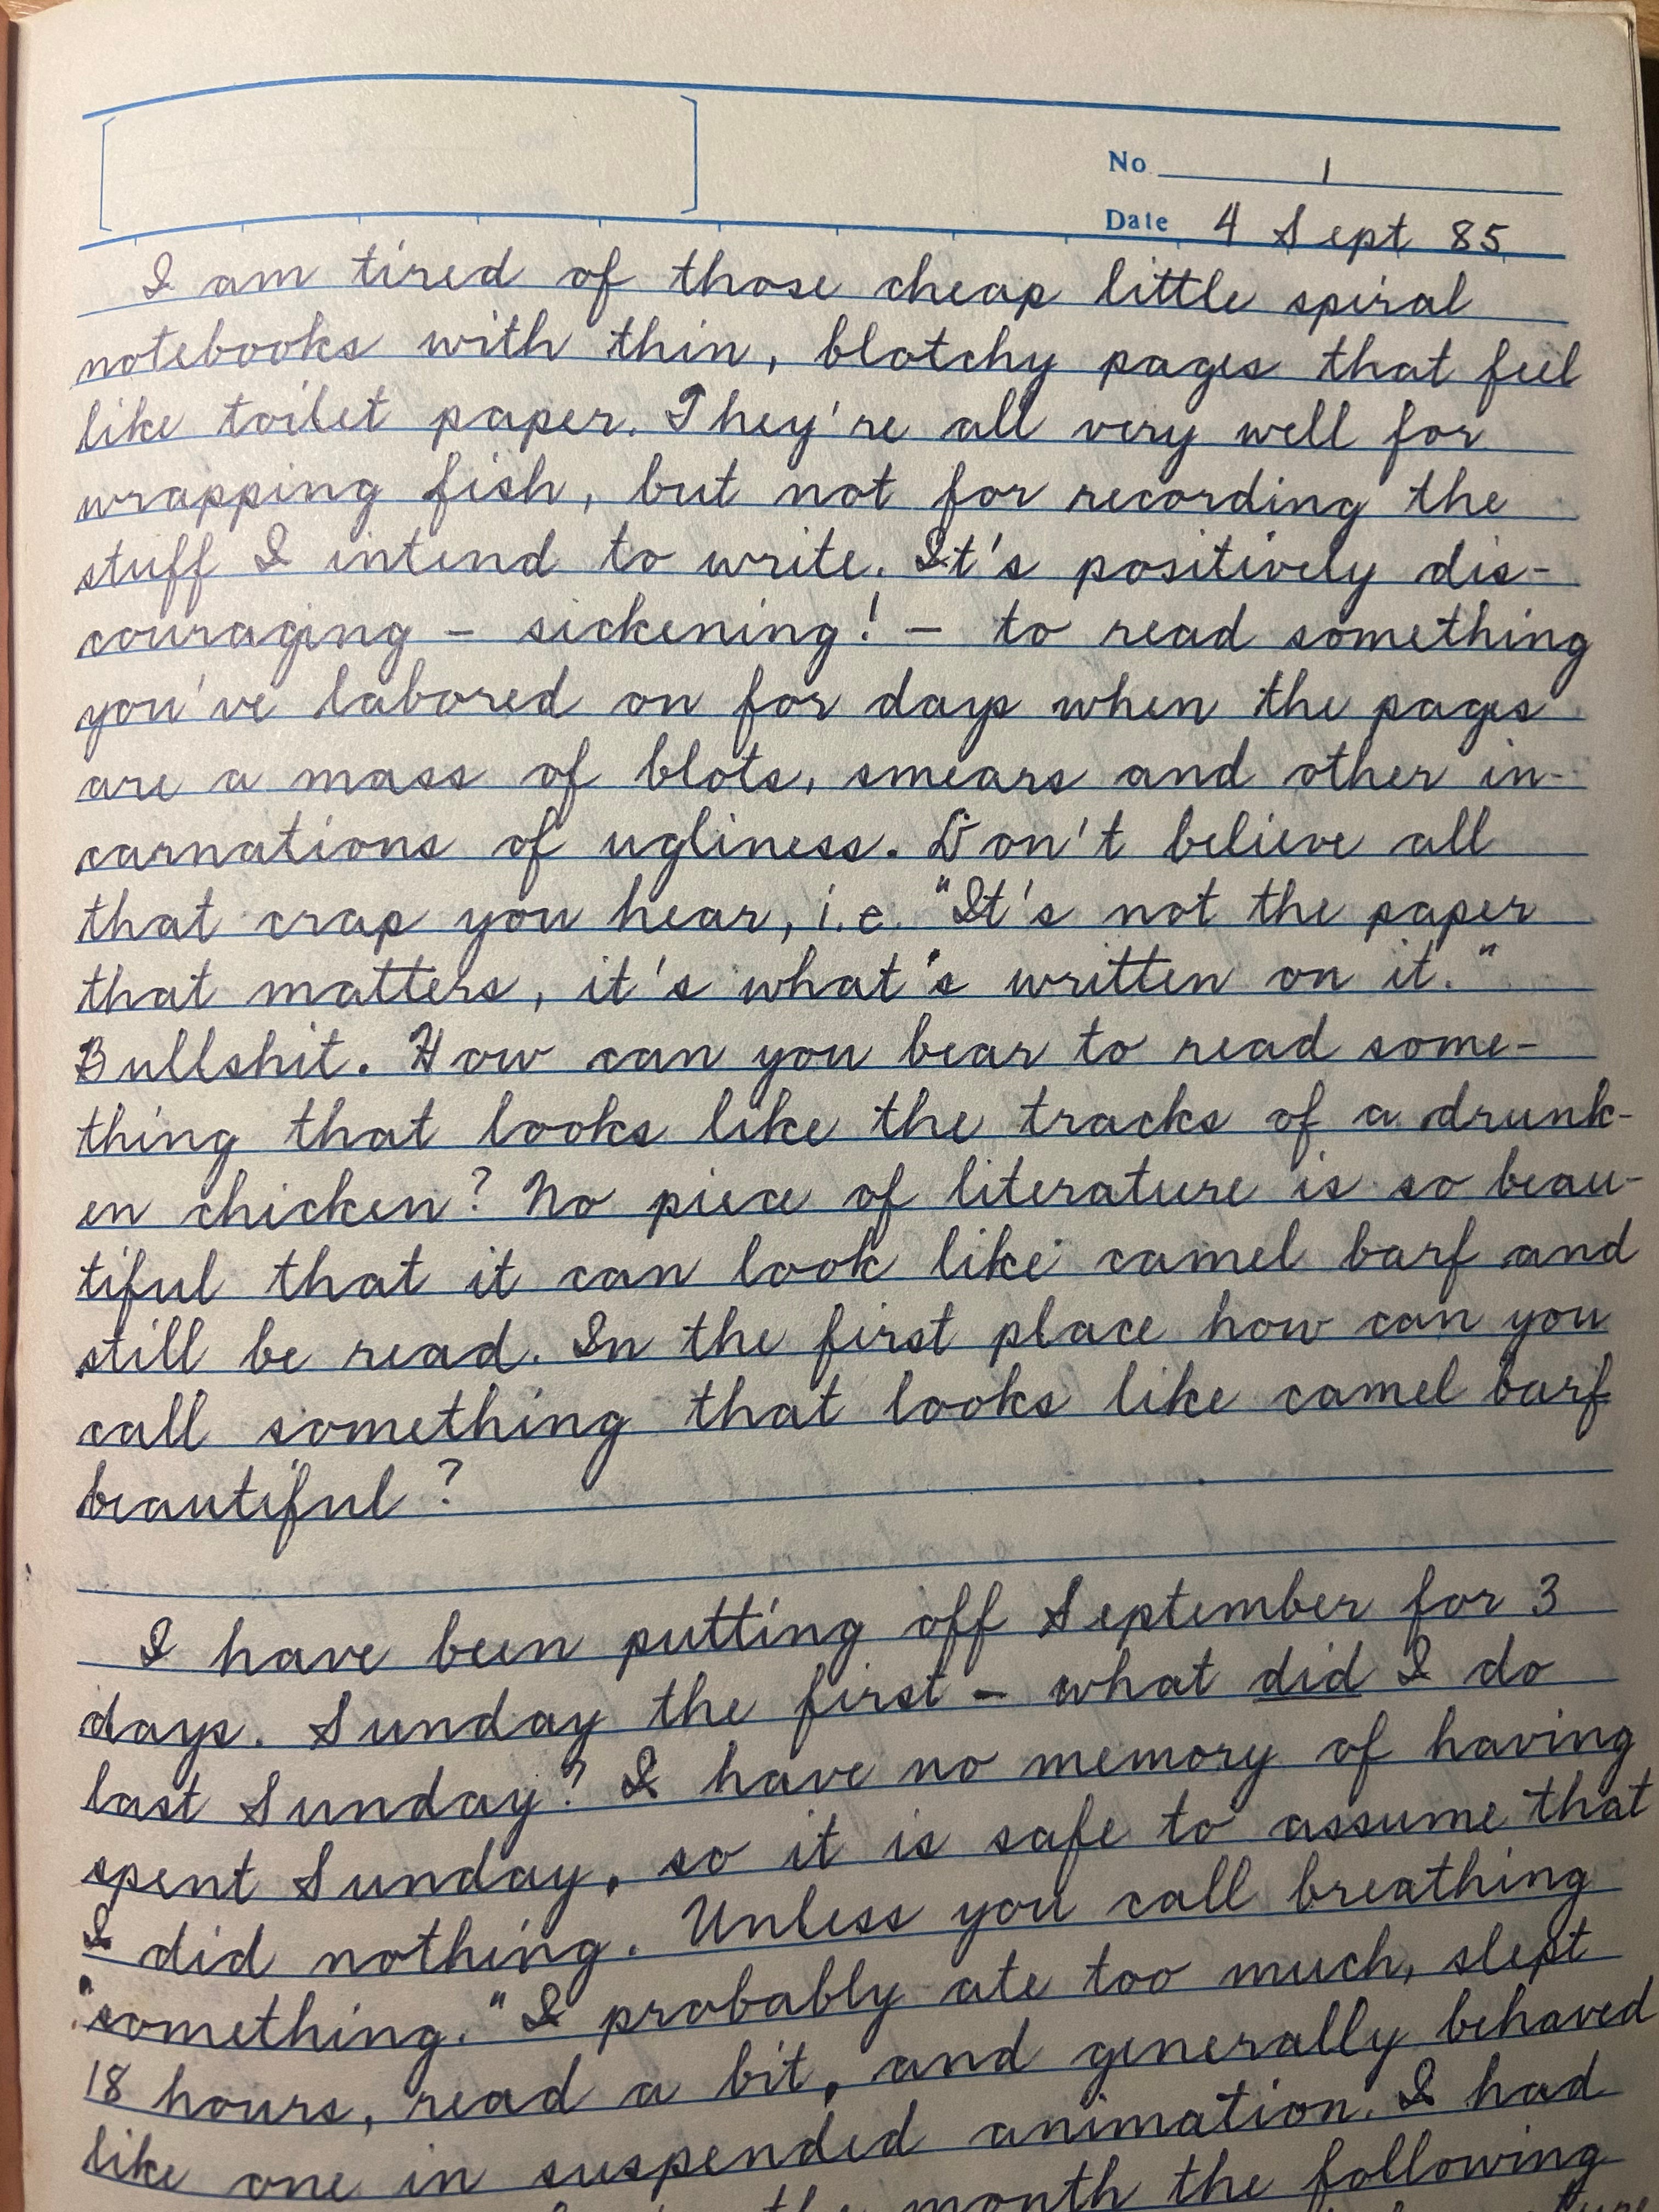 No. 1
Date 4 Sept 85
I am tired of those cheap little spiral
notebooks with thin, blotchy pages that feel
like toilet paper. They're all very well for
wrapping fish, but not for recording the
stuff I intend to write. It's positively dis-
couraging - sickening! - to read something
you've labored on for days when the pages
are a mass of blots, smears and other in-
carnations of ugliness. Don't believe all
that crap you hear, i.e. "It's not the paper
that matters, it's what's written on it."
Bullshit. How can you bear to read some-
thing that looks like the tracks of a drunk-
en chicken? No piece of literature is so beau-
tiful that it can look like camel barf and
still be read. In the first place how can you
call something that looks like camel barf
beautiful?
I have been putting off September for 3
days. Sunday the first - what did I do
last Sunday? I have no memory of having
spent Sunday, so it is safe to assume that
I did nothing. Unless you call breathing
"something." I probably ate too much, slept
18 hours, read a bit, and generally behaved
like one in suspended animation. I had
the month the following